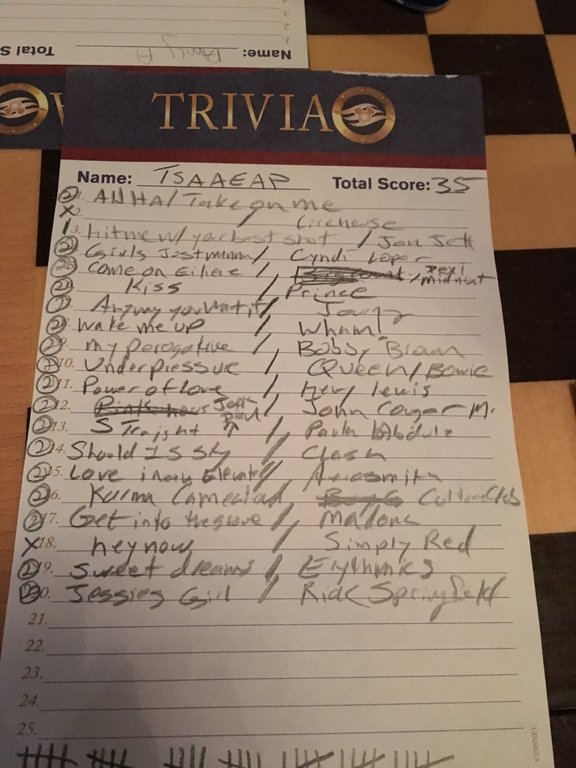 Total S
Name: Amy A
TRIVIA
Name: TSAAEAP Total Score: 35
② 1. AHHA / Take on me
X 2. / Firehouse
1 3. hit me w/ your best shot / Joan Jett
② Girls Just Wanna / Cyndi Loper
② Come on Eiliene / Dexi / midnight
② Kiss / Prince
② 7. Anyway you want it / Journy
② 8. Wake me up / Wham!
② 9. my perogative / Bobby Brown
② 10. Underpressure / Queen / Bowie
② 11. Power of Love / Huey lewis
② 12. Jack Diane / John Cougar M.
② 13. Straight ↑ / Paula Abdula
② 14. Should I Stay / Clash
② 15. Love in an Elevator / Aerosmith
② 16. Karma Camealod / Culture Club
② 17. Get into the grove / Madona
X 18. hey now / Simply Red
② 19. Sweet dreams / Erythmics
② 20. Jessies Girl / Rick Springfield
21.
22.
23.
24.
25.
©DISNEY